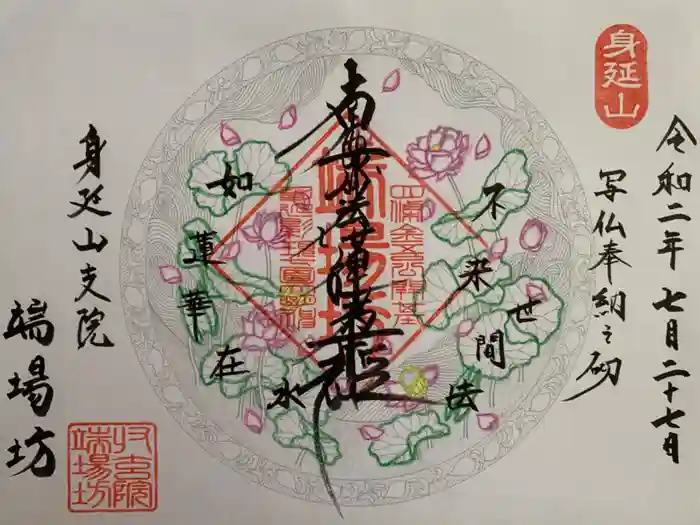 身延山
令和二年七月二十七日
写仏奉納之砌
不染世間法
南無妙法蓮華経
四條金吾開基
端場坊
如蓮華在水
身延山支院
端場坊
端場坊